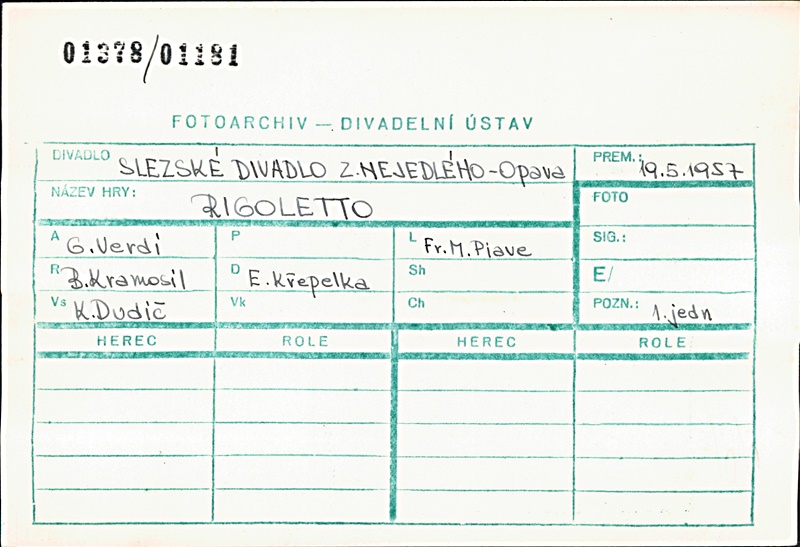 01378/01181
FOTOARCHIV — DIVADELNÍ ÚSTAV
DIVADLO SLEZSKÉ DIVADLO Z. NEJEDLÉHO - Opava
PREM.: 19.5.1957
NÁZEV HRY: RIGOLETTO
FOTO
A G. Verdi
P
L Fr. M. Piave
SIG.:
R B. Kramosil
D E. Křepelka
Sh
E/
Vs K. Dudič
Vk
Ch
POZN.: 1. jedn
HEREC ROLE HEREC ROLE